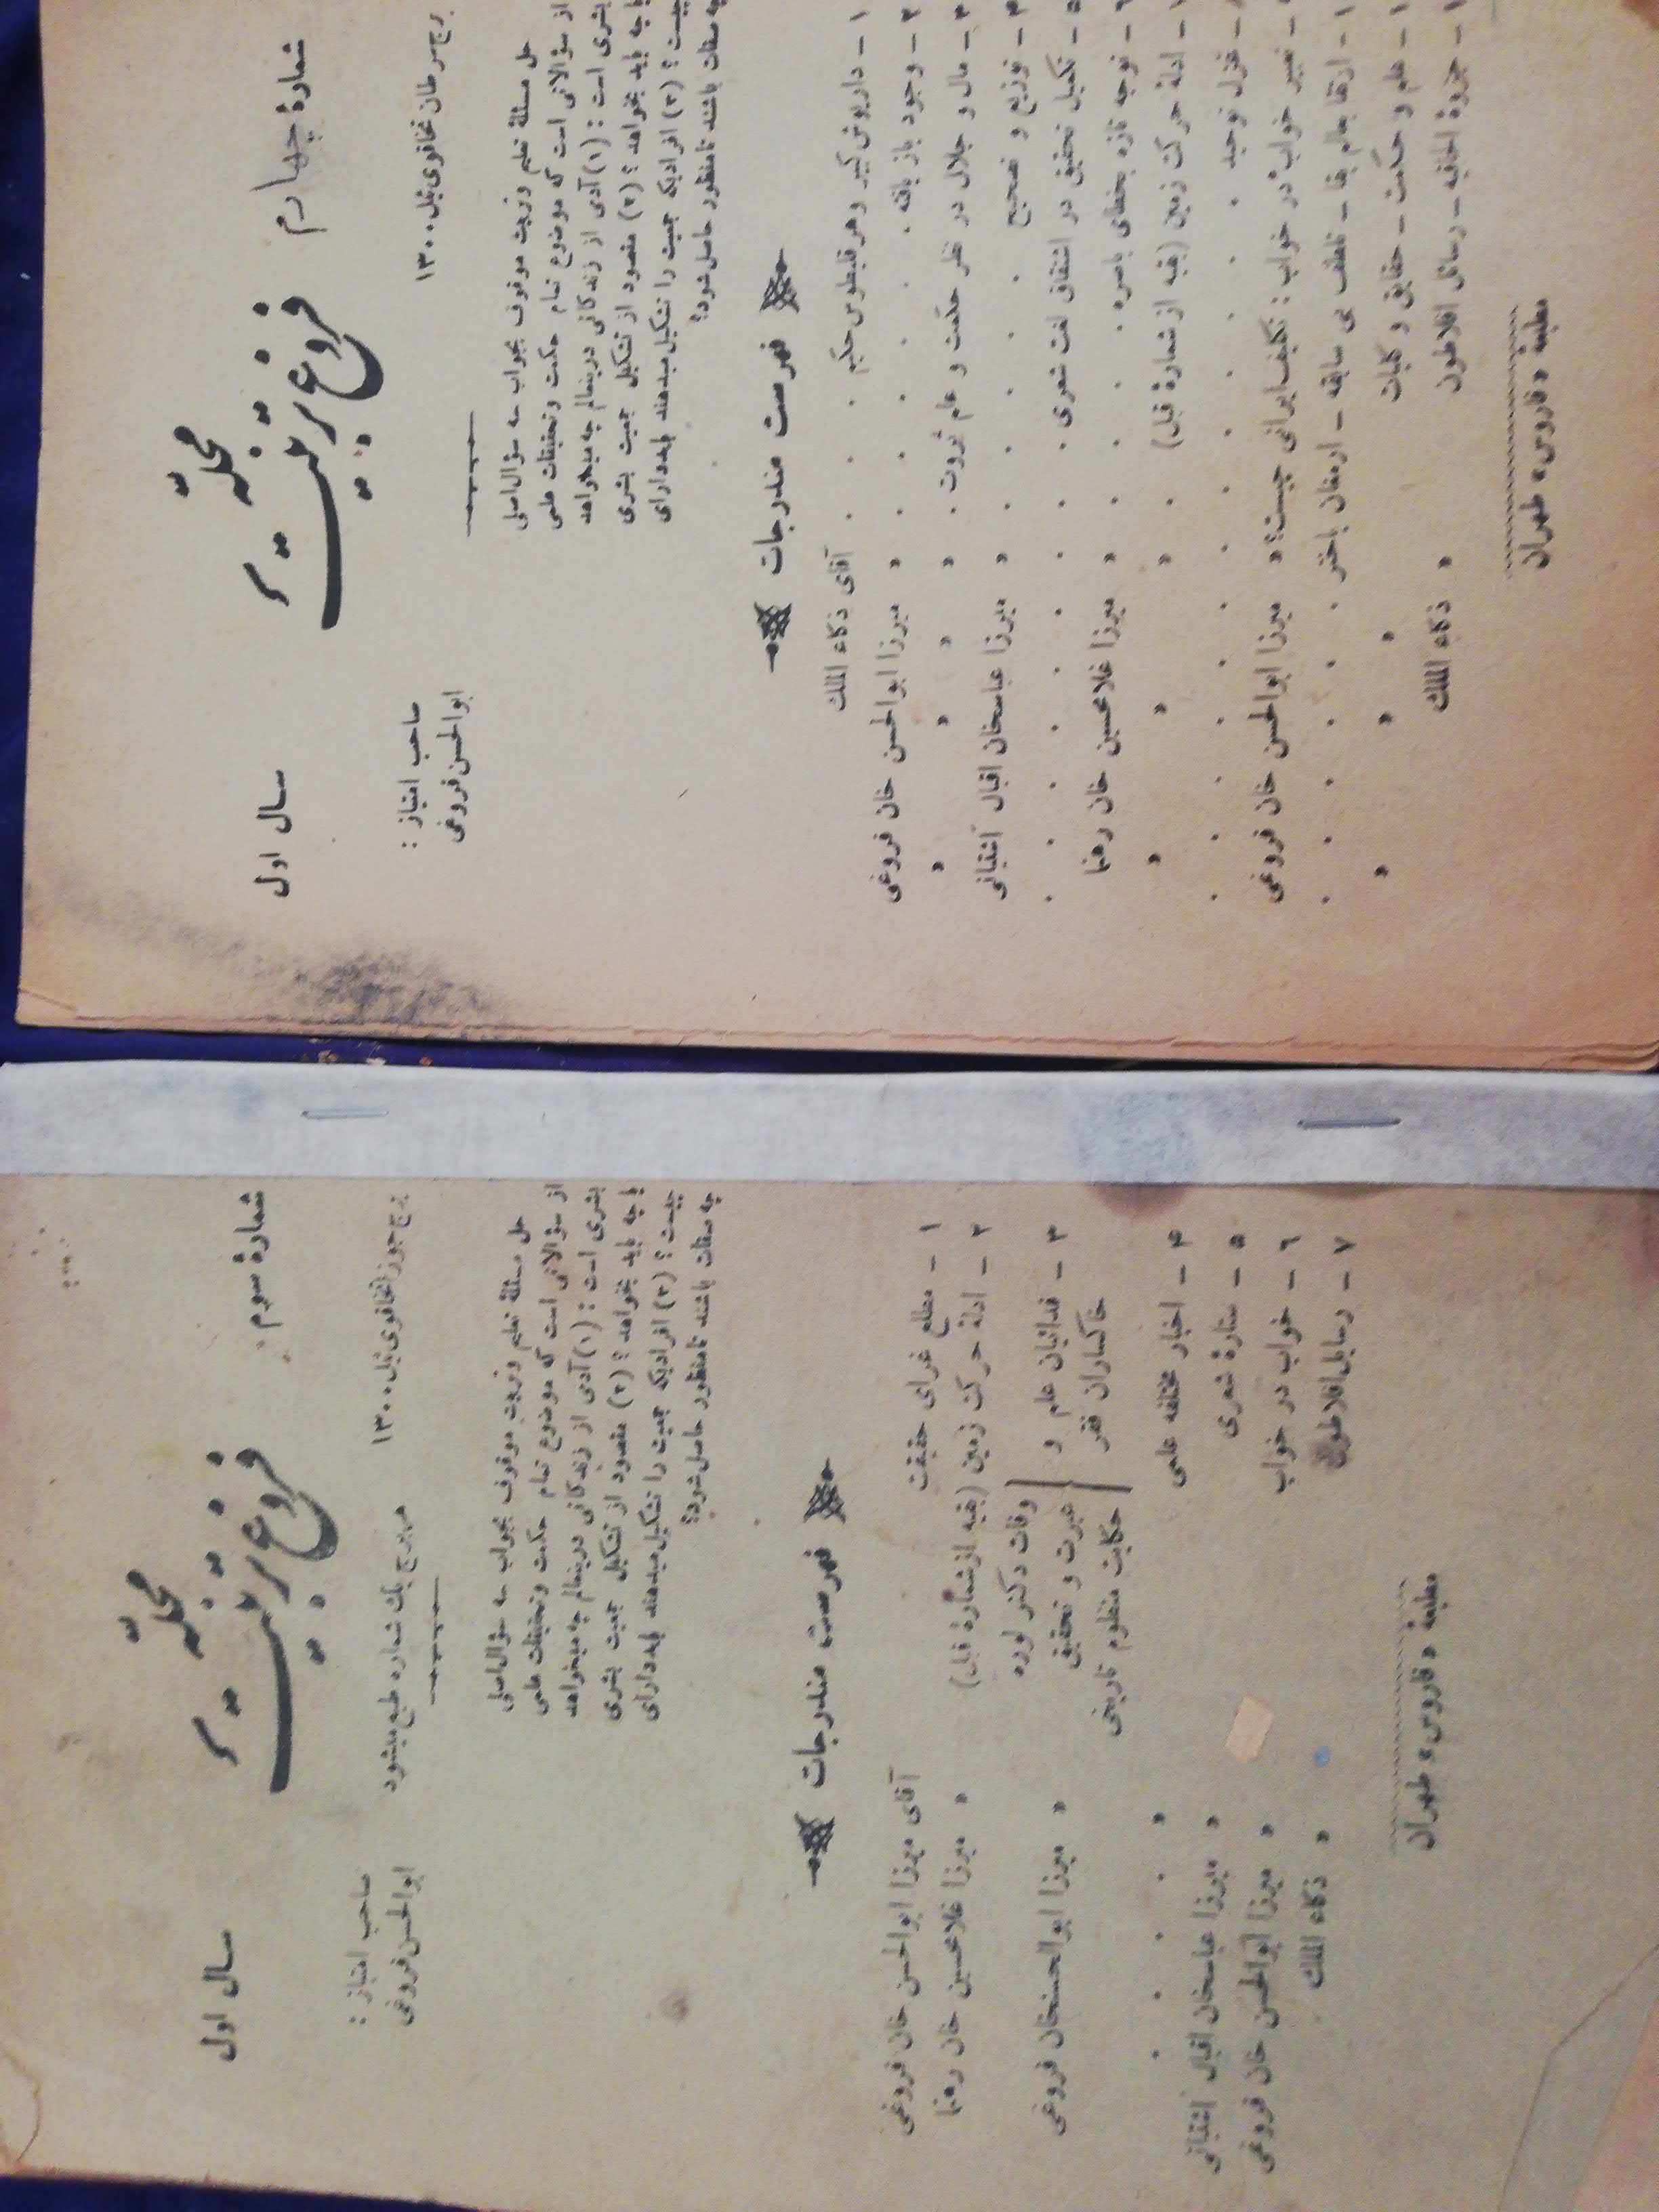 سال اول
مجلهٔ
فروغ تربیت
شمارهٔ چهارم
صاحب امتیاز :
ابوالحسن فروغی
برج سرطان تخاقوی‌ئیل ۱۳۰۰
حل مسئلهٔ تعلیم و تربیت موقوف بجواب سه سؤال اصلی
از سؤالاتی است که موضوع تمام حکمت و تحقیقات علمی
بشری است : (۱) آدمی از زندگانی درینعالم چه میخواهد
یا چه باید بخواهد ؟ (۲) مقصود از تشکیل جمعیت بشری
چیست ؟ (۳) افرادیکه جمعیت را تشکیل میدهند باید دارای
چه صفات باشند تا منظور حاصل شود؟
فهرست مندرجات
۱ – داریوش کبیر و هرقلیطوس حکیم . . . آقای ذکاء الملك
۲ – وجود باز یافته . . . . » میرزا ابوالحسن خان فروغی
۳ – مال و جلال در نظر حکمت و علم ثروت . » » » »
۴ – توزیع و تصحیح . . . . » میرزا عباسخان اقبال آشتیانی
۵ – تکمیل تحقیق در اشتقاق لغت شعری . . . . . . .
– توجه تازه بخطای باصره . . . . » میرزا غلامحسین خان رهنما
– ادلهٔ حرکت زمین (بقیه از شمارهٔ قبل) . » » »
– غزل توحید . . . . . . . . .
– تعبیر خواب در خواب : تکلیف ایرانی چیست؟ » میرزا ابوالحسن خان فروغی
– ارتقا بعالم بقا – تلطف بی سابقه – ارمغان باختر . . . . .
– علم و حکمت – حقایق و کلیات » » »
– جزوهٔ الحاقیه – رسائل افلاطون » ذکاء الملك
مطبعهٔ «فاروس» طهران
سال اول
مجلهٔ
فروغ تربیت
شمارهٔ سوم
صاحب امتیاز :
ابوالحسن فروغی
هر برج یك شماره طبع میشود
برج جوزا تخاقوی‌ئیل ۱۳۰۰
حل مسئلهٔ تعلیم و تربیت موقوف بجواب سه سؤال اصلی
از سؤالاتی است که موضوع تمام حکمت و تحقیقات علمی
بشری است : (۱) آدمی از زندگانی درینعالم چه میخواهد
یا چه باید بخواهد ؟ (۲) مقصود از تشکیل جمعیت بشری
چیست ؟ (۳) افرادیکه جمعیت را تشکیل میدهند باید دارای
چه صفات باشند تا منظور حاصل شود؟
فهرست مندرجات
۱ – مطلع غرای حقیقت آقای میرزا ابوالحسن خان فروغی
۲ – ادلهٔ حرکت زمین (بقیه از شمارهٔ قبل) » میرزا غلامحسین خان رهنما
وفات دکتر لوره
۳ – فدائیان علم و عبرت و تحقیق » میرزا ابوالحسنخان فروغی
خاکساران فقر حکایت منظوم تاریخی
۴ – اخبار مختلفه علمی » . . . .
۵ – ستارهٔ شعری » میرزا عباسخان اقبال اشتیانی
۶ – خواب در خواب » میرزا ابوالحسن خان فروغی
۷ – رسایل افلاطون » ذکاء الملك
مطبعهٔ «فاروس» طهران